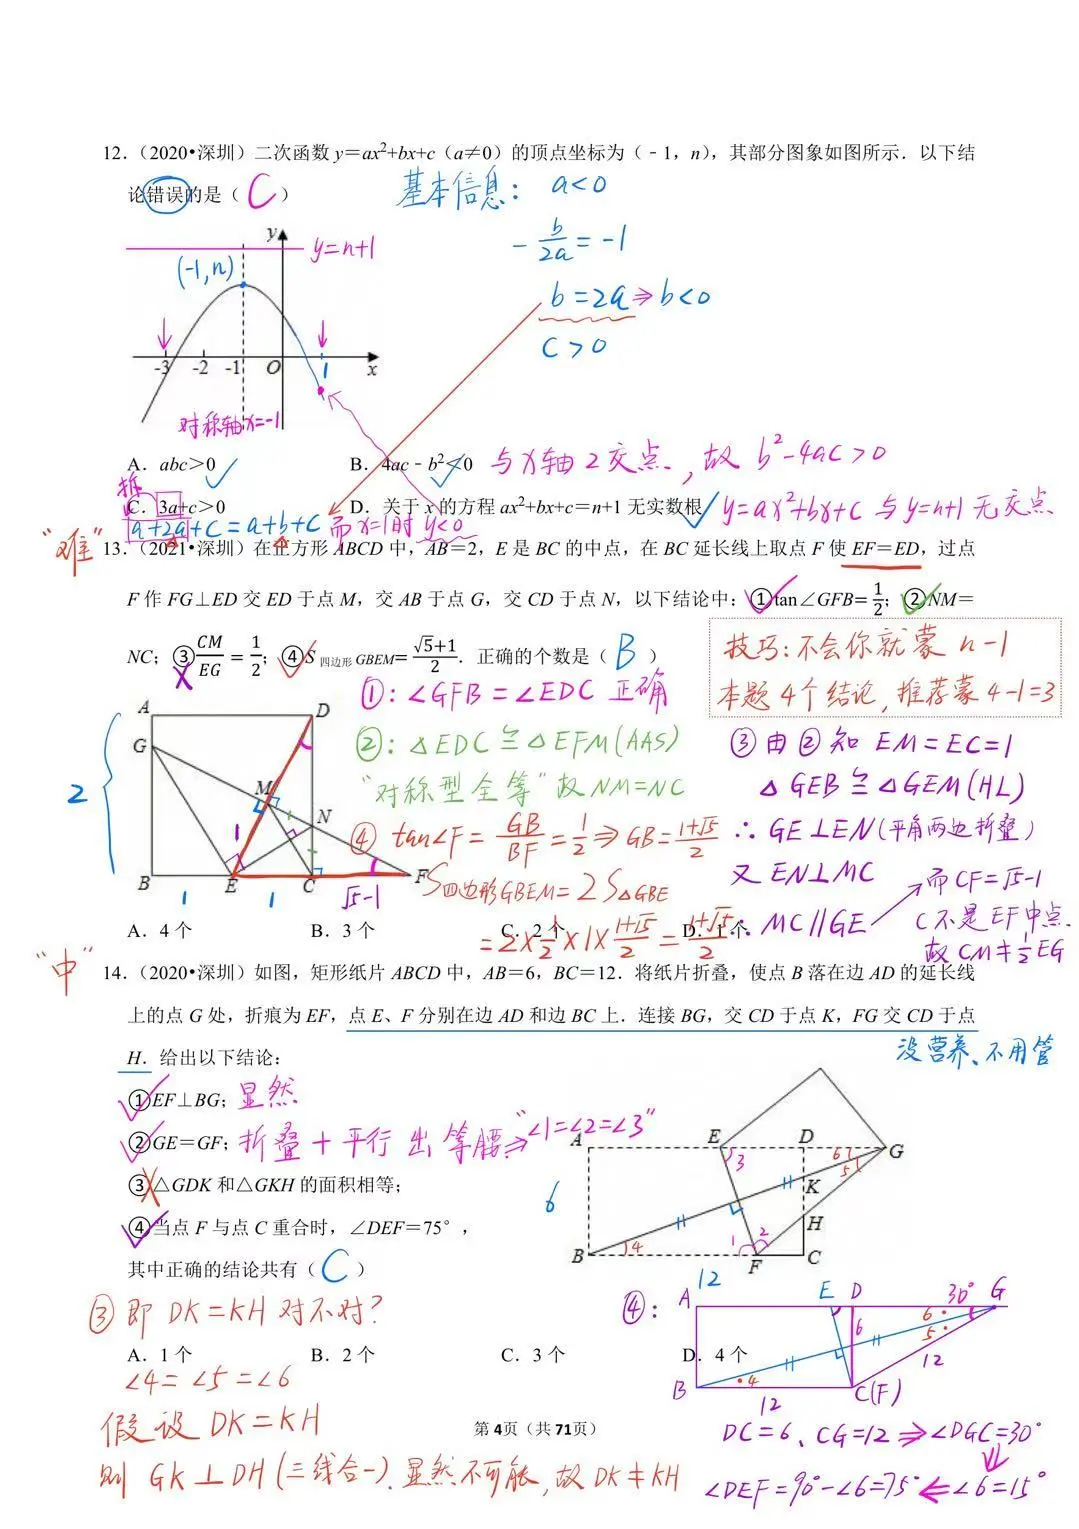 12.（2020•深圳）二次函数 y＝ax²+bx+c（a≠0）的顶点坐标为（﹣1，n），其部分图象如图所示．以下结
论错误的是（ C ）
基本信息： a<0
-b/2a = -1
b=2a⇒b<0
c>0
y
y=n+1
(-1,n)
-3 -2 -1 O 1 x
对称轴x=-1
A．abc＞0 ✓
B．4ac﹣b²＜0 ✓ 与x轴2交点，故 b²-4ac>0
拆
C．3a+c＞0
D．关于 x 的方程 ax²+bx+c＝n+1 无实数根 ✓ y=ax²+bx+c 与 y=n+1 无交点
a+2a+c=a+b+c 而x=1时 y<0
“难”
13.（2021•深圳）在正方形 ABCD 中，AB＝2，E 是 BC 的中点，在 BC 延长线上取点 F 使 EF＝ED，过点
F 作 FG⊥ED 交 ED 于点 M，交 AB 于点 G，交 CD 于点 N，以下结论中：①tan∠GFB＝1/2；②NM＝
NC；③CM/EG＝1/2；④S四边形GBEM＝(√5+1)/2．正确的个数是（ B ）
技巧：不会你就蒙 n-1
本题4个结论，推荐蒙4-1=3
①：∠GFB=∠EDC 正确
②：△EDC≅△EFM(AAS)
“对称型全等”故NM=NC
③由②知 EM=EC=1
△GEB≅△GEM(HL)
∴GE⊥EN(平角两边折叠)
又 EN⊥MC
∴MC∥GE
而CF=√5-1
C不是EF中点
故 CM≠1/2EG
④ tan∠F=GB/BF=1/2⇒GB=(1+√5)/2
S四边形GBEM=2S△GBE
=2×1/2×1×(1+√5)/2=(1+√5)/2
A D
G
M
N
B E C F
2
1
1 1 √5-1
A．4个 B．3个 C．2个 D．1个
“中”
14.（2020•深圳）如图，矩形纸片 ABCD 中，AB＝6，BC＝12．将纸片折叠，使点 B 落在边 AD 的延长线
上的点 G 处，折痕为 EF，点 E、F 分别在边 AD 和边 BC 上．连接 BG，交 CD 于点 K，FG 交 CD 于点
H．给出以下结论：
没营养、不用管
①EF⊥BG；显然
②GE＝GF；折叠+平行 出 等腰⇒“∠1=∠2=∠3”
③△GDK 和△GKH 的面积相等；
④当点 F 与点 C 重合时，∠DEF＝75°，
其中正确的结论共有（ C ）
A E D G
3 6 5
K
H
6
4 1 2
B F C
12
③即 DK=KH 对不对？
A．1个 B．2个 C．3个 D．4个
∠4=∠5=∠6
假设 DK=KH
则 GK⊥DH(三线合一)．显然不可能，故 DK≠KH
④：
A E D 30° G
6 6
5
12
4
B 12 C(F)
DC=6、CG=12⇒∠DGC=30°
⇓
∠DEF=90°-∠6=75°⇐∠6=15°
第 4页（共 71页）